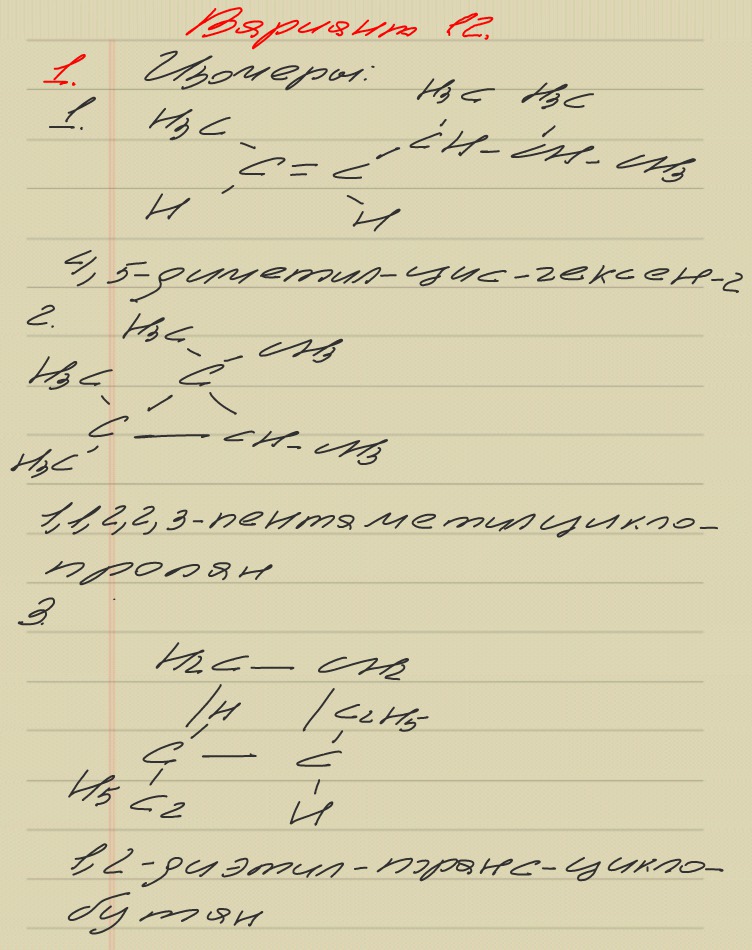 Вариант 12.
1. Изомеры:
H3C H3C
1. H3C CH - CH - CH3
C = C
H H
4,5-диметил-цис-гексен-2
2. H3C CH3
H3C C
C — CH - CH3
H3C
1,1,2,2,3-пентаметилцикло-
пропан
3.
H2C — CH2
H C2H5
C — C
H5C2 H
1,2-диэтил-транс-цикло-
бутан